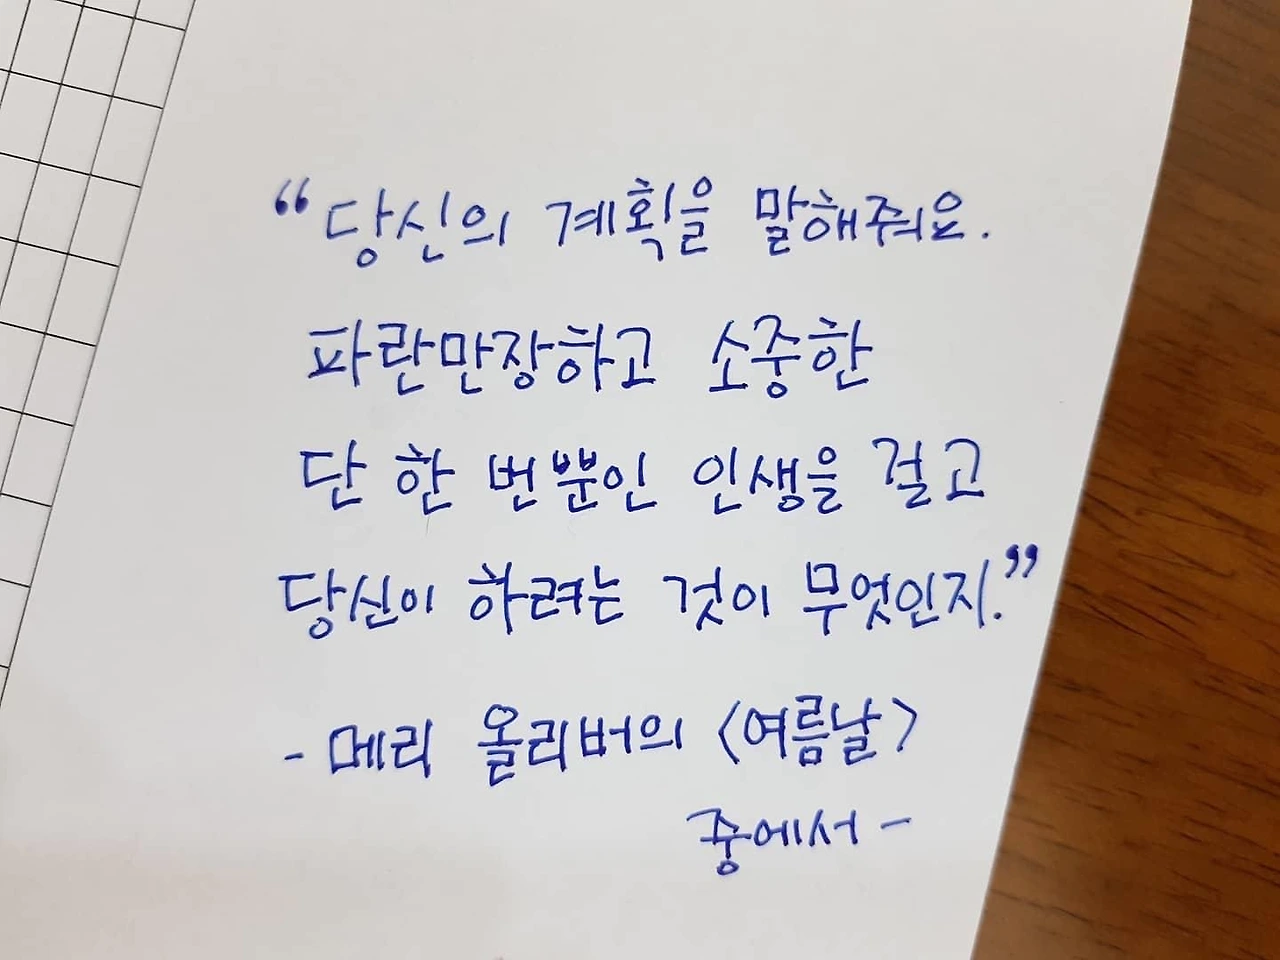 “당신의 계획을 말해줘요.
파란만장하고 소중한
단 한 번뿐인 인생을 걸고
당신이 하려는 것이 무엇인지.”
- 메리 올리버의 〈여름날〉
중에서 -